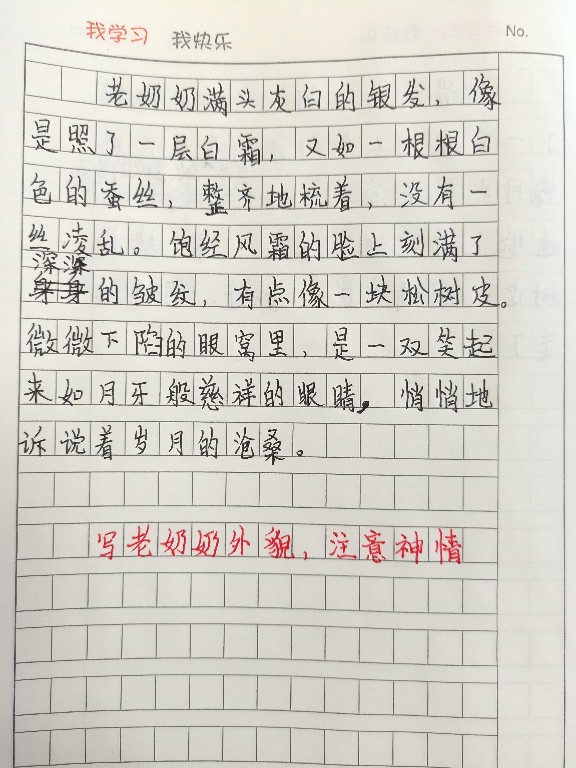 我学习 我快乐 No.
老奶奶满头灰白的银发，像
是照了一层白霜，又如一根根白
色的蚕丝，整齐地梳着，没有一
丝凌乱。饱经风霜的脸上刻满了
深深
身身的皱纹，有点像一块松树皮。
微微下陷的眼窝里，是一双笑起
来如月牙般慈祥的眼睛，悄悄地
诉说着岁月的沧桑。
写老奶奶外貌，注意神情